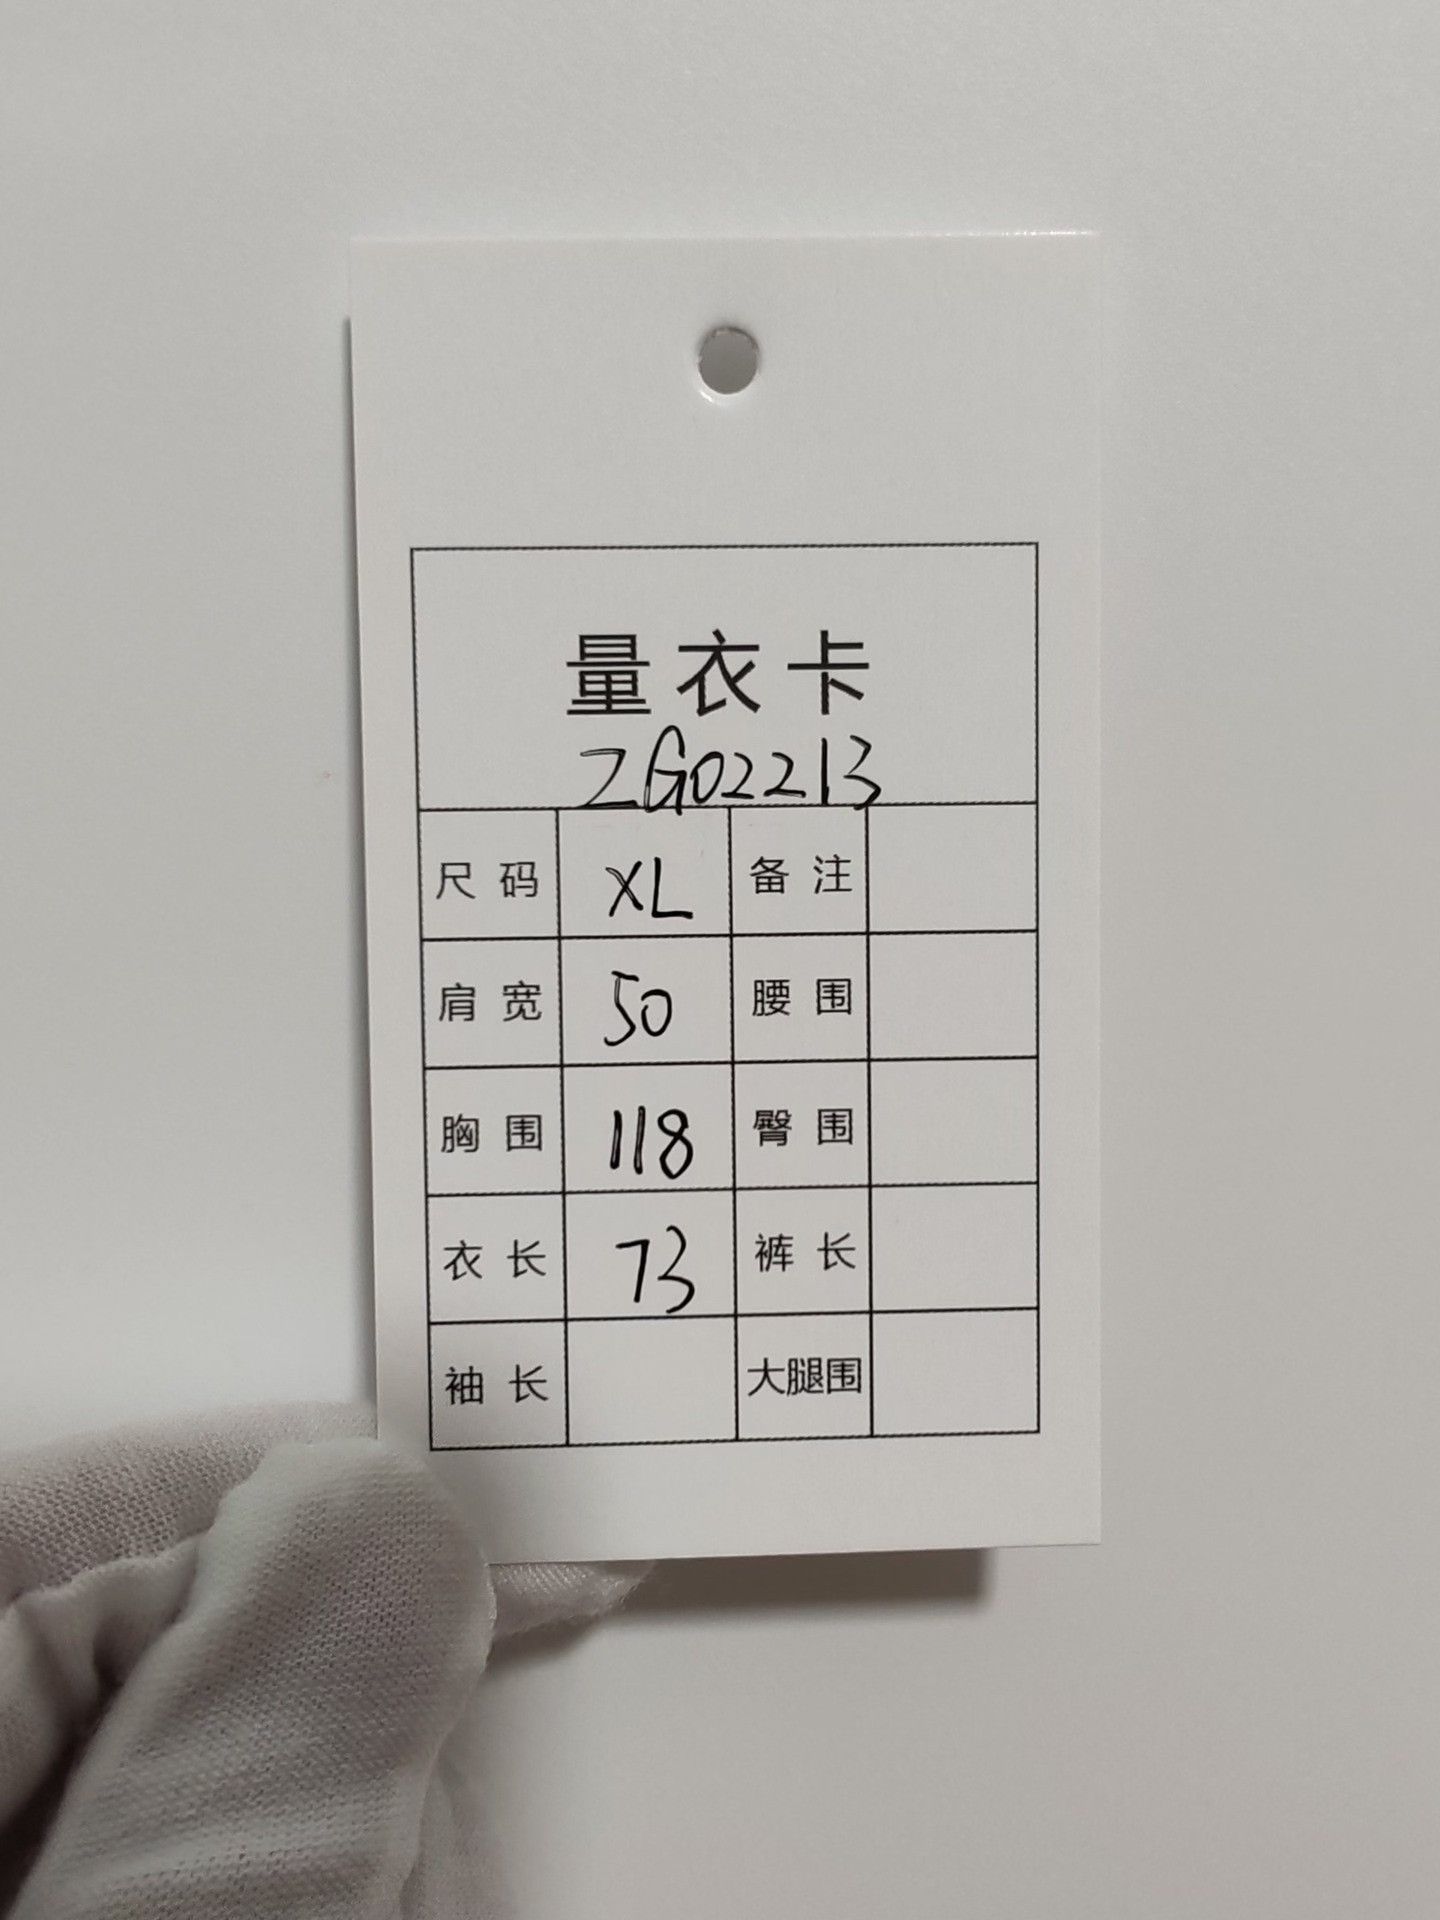 量衣卡
ZG02213
尺码 XL 备注
肩宽 50 腰围
胸围 118 臀围
衣长 73 裤长
袖长 大腿围